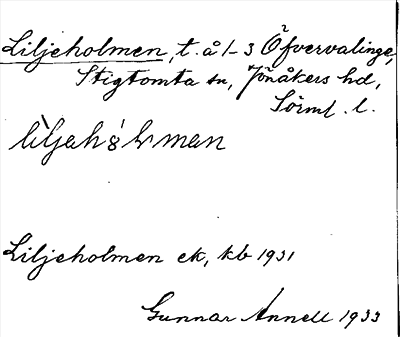 Liljeholmen, t. å 1-3 Öfvervalinge,
Stigtomta sn, Jönåkers hd,
Sörml. l.
Liljeholmen ek, kb 1931
Gunnar Annell 1933